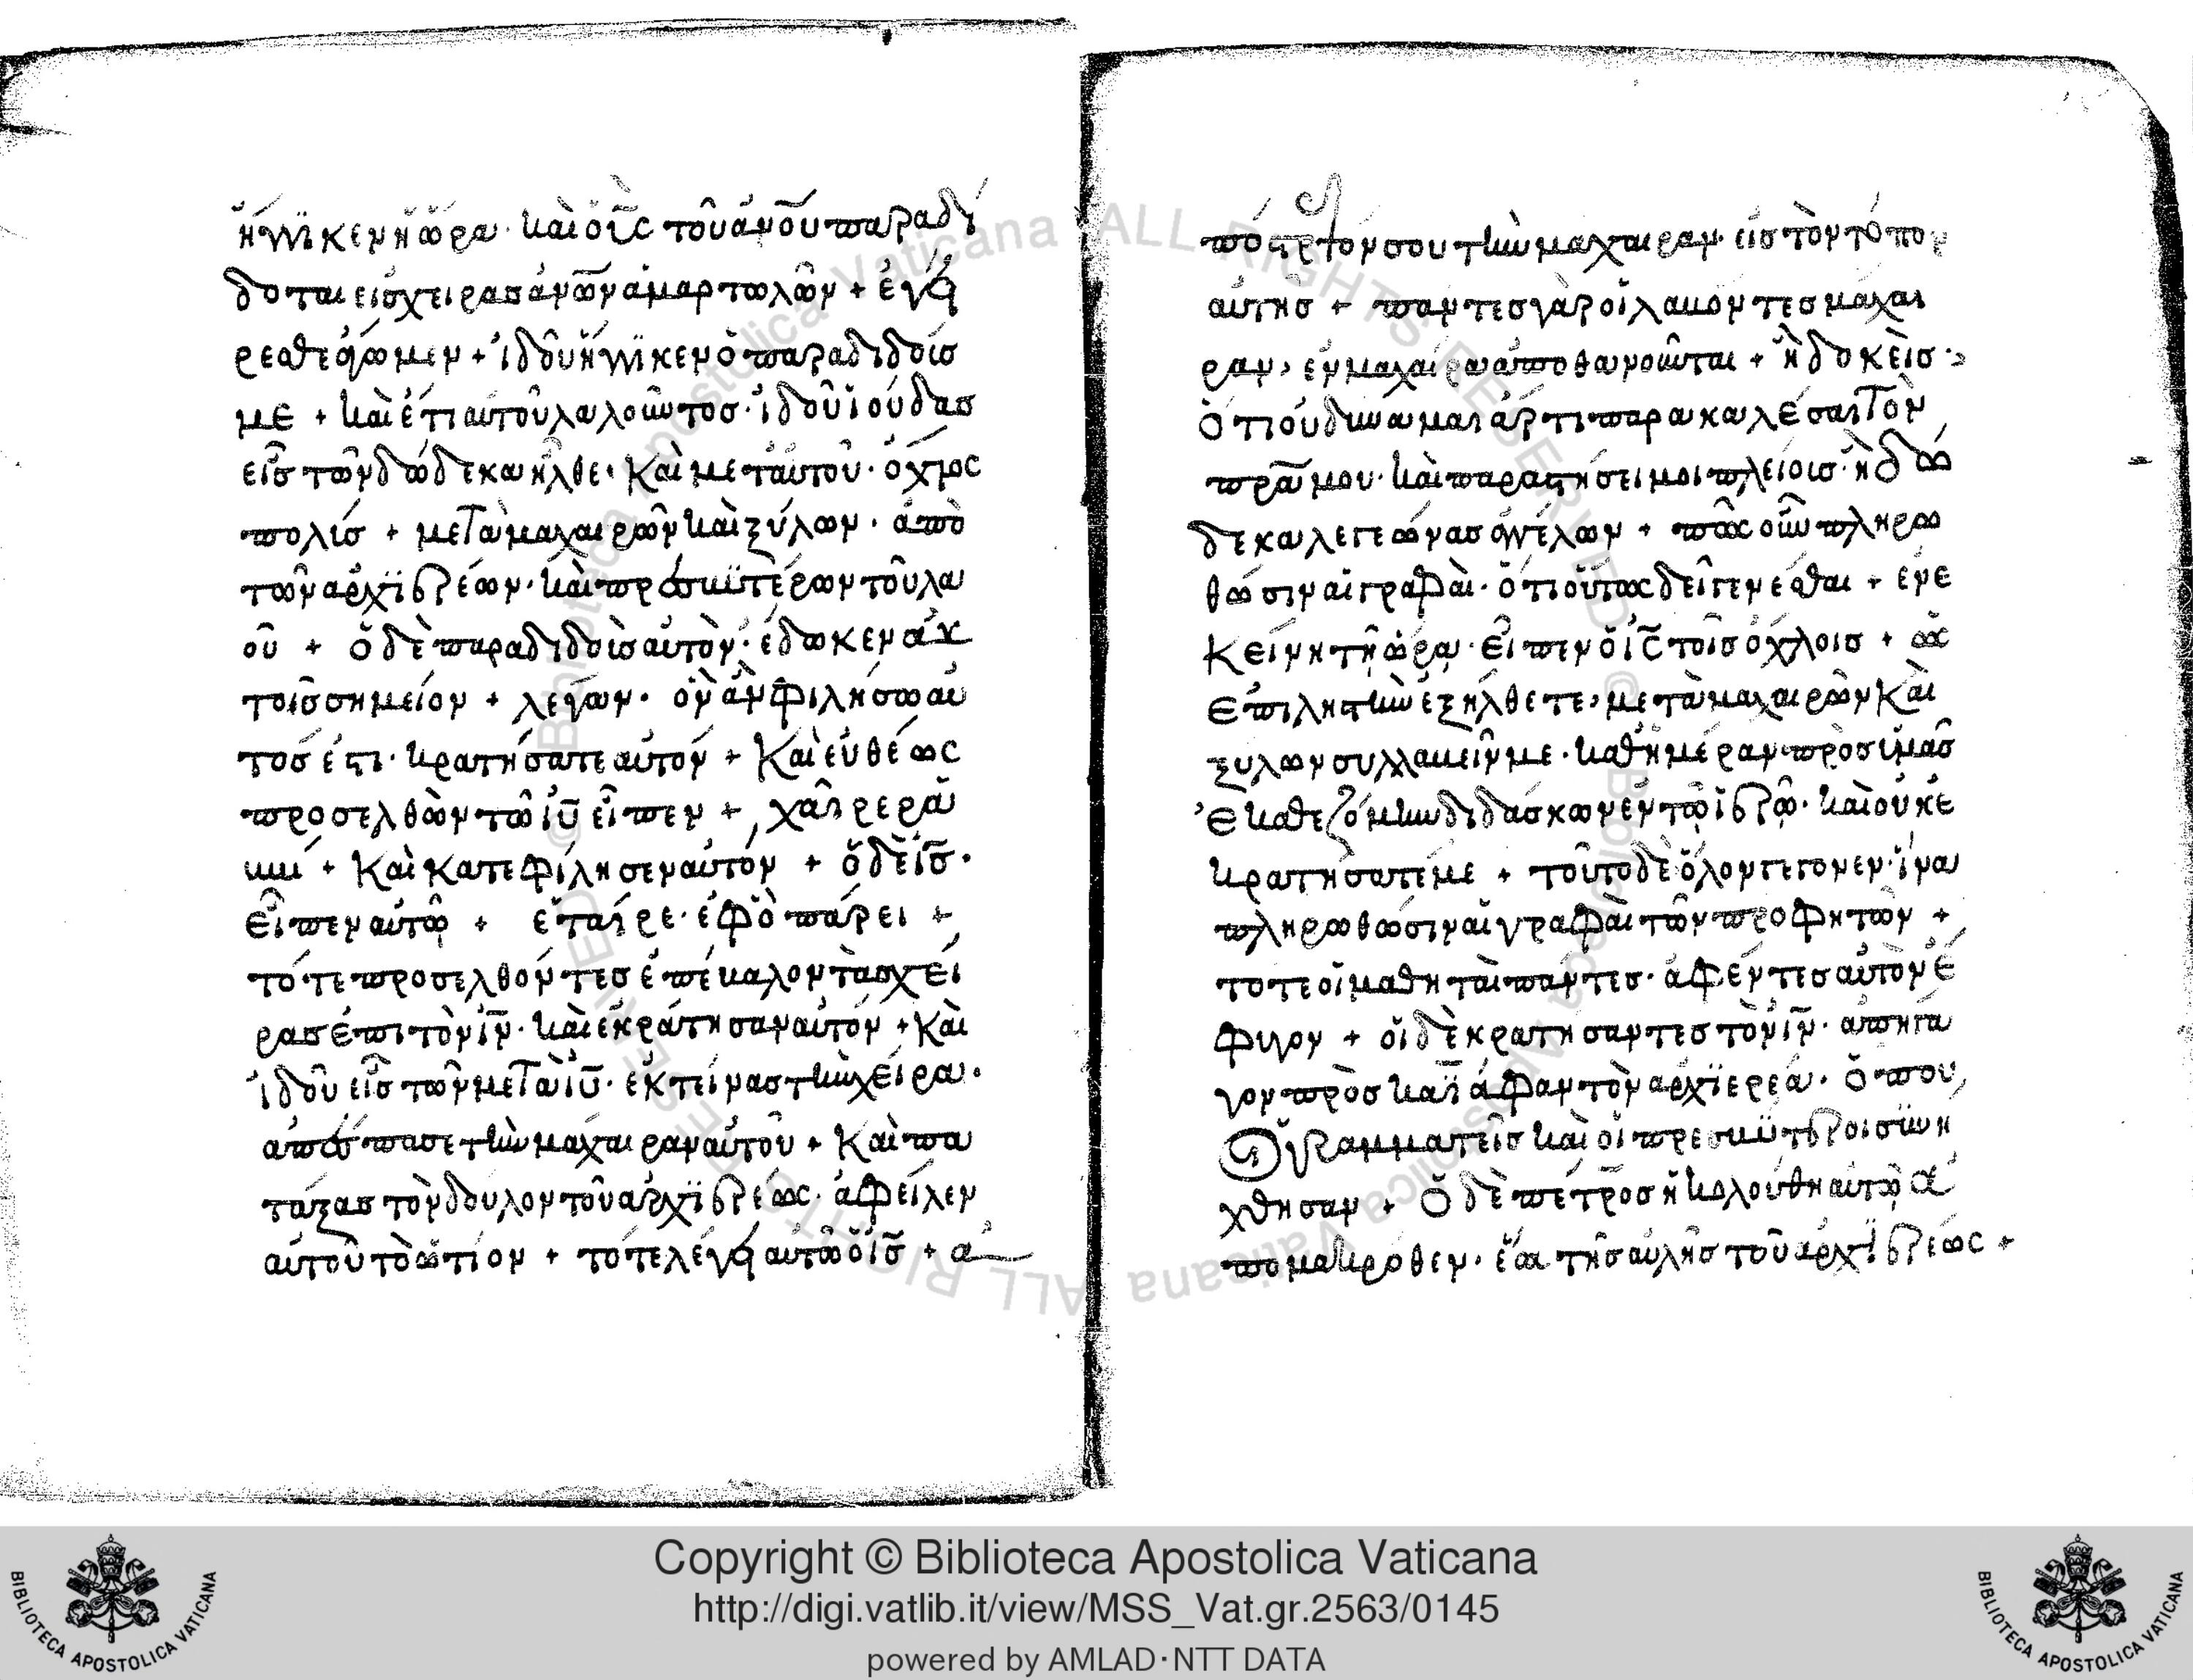 ἤγγϊκεν ἡ ὥρα· καὶ ὁ ὑ̅ς τοῦ ἀν̅ου παραδί
δοται εἰς χειρας ἀν̅ων ἁμαρτωλῶν + ἐγεί
ρεσθε ἄγωμεν + ἰδοῦ ἤγγϊκεν ὁ παραδιδοίσ
με + καὶ ἔτι αὐτοῦ λαλοῦντοσ· ἰδοῦ ἰούδασ
εἶσ τῶν δώδεκα ἦλθε· καὶ μετ αὐτοῦ· ὄχλος
πολίσ + μετὰ μαχαιρῶν καὶ ξύλων· ἀπὸ
τῶν ἀρχϊερέων· καὶ πρεσβϋτέρων τοῦ λα
οῦ + ὁ δὲ παραδιδοὶσ αὐτὸν· ἔδωκεν αὐ
τοῖσ σημείον + λέγων· ὃν ἂν φιλήσω αὐ
τοσ ἐστι· κρατήσατε αὐτον + Καὶ εὐθέως
προσελθὼν τῶ ἰυ̅ εἶπεν + χαῖρε ρα
ββί + Καὶ κατεφίλησεν αὐτόν + ὁ δὲ ἰσ̅·
εἶπεν αὐτῶ + ἑταίρε· ἐφ ὃ πάρει +
τότε προσελθόντεσ ἐπέβαλον τὰσ χεί
ρασ ἐπι τὸν ἰν̅· καὶ ἐκράτησαν αὐτόν + Καὶ
ἰδοῦ εἶσ τῶν μετὰ ἰυ̅· ἐκτείνασ τὴν χείρα·
ἀπέσπασε τὴν μάχαιραν αὐτοῦ + Καὶ πα
τάξασ τὸν δουλον τοῦ ἀρχϊερέως· ἀφείλεν
αὐτοῦ τὸ ὠτίον + τότε λέγει αὐτῶ ὁ ἰσ̅ + ἀ
πόστρεψον σου τὴν μαχαιραν· εἰσ τὸν τόπον
αὐτησ + παντεσ γὰρ οἱ λαβόντεσ μάχαι
ραν, ἐν μαχαίρα ἀποθανοῦνται + ἢ δοκεὶσ·
ὅτι οὐ δύναμαι ἄρτι παρακαλέσαι τὸν
πρ̅α μου· καὶ παραστήσει μοι πλείοισ· ἢ δώ
δεκα λεγεώνασ ἀγγέλων + πῶς οὖν πληρω
θώσιν αἱ γραφαὶ· ὅτι οὕτως δεῖ γενέσθαι + ἐνε
κείνη τῆ ὥρα· εἶπεν ὁ ἰς̅ τοῖσ ὄχλοισ + ὡς
ἐπι ληστὴν ἐξήλθετε, μετὰ μαχαιρῶν καὶ
ξυλων συλλαβεῖν με· καθ ἡμέραν πρὸσ ὑμᾶσ
ἐκαθεζόμην διδάσκων ἐν τῶ ἱερῶ· καὶ οὐκ ἐ
κρατήσατέ με + τοῦτο δὲ ὅλον γέγονεν· ἵνα
πληρωθώσιν αἱ γραφαὶ τῶν προφητῶν +
τοτε οἱ μαθηταὶ παντεσ· ἀφέντεσ αὐτὸν ἔ
φυγον + οἱ δὲ κρατησαντεσ τὸν ἰν̅· ἀπήγα
γον πρὸσ καϊάφαν τὸν ἀρχϊερέα· ὅπου
οἱ γραμματεῖσ καὶ οἱ πρεσβϋτεροι σϋνή
χθησαν + Ὁ δὲ πέτροσ ἠκολούθη αὐτῶ ἀ
πο μακρόθεν· ἕως τῆσ αὐλῆσ τοῦ ἀρχϊερέως +
Copyright © Biblioteca Apostolica Vaticana
http://digi.vatlib.it/view/MSS_Vat.gr.2563/0145
powered by AMLAD·NTT DATA
BIBLIOTECA APOSTOLICA VATICANA
BIBLIOTECA APOSTOLICA VATICANA